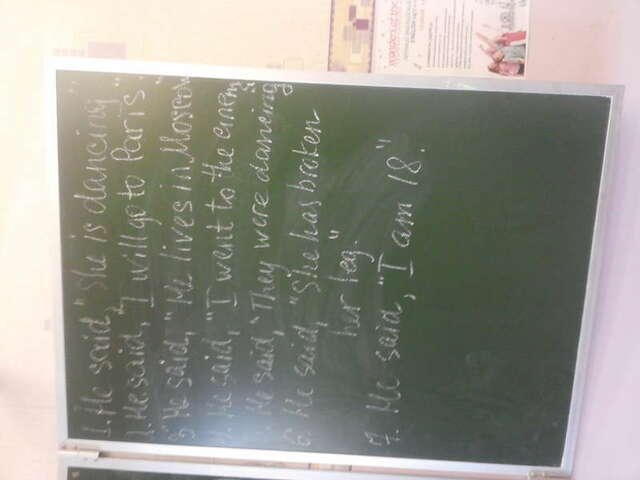 1. He said, "She is dancing".
2. He said, "I will go to Paris".
3. He said, "He lives in Moscow
4. He said, "I went to the cinem
5. He said, "They were dancing"
6. He said, "She has broken
her leg."
7. He said, "I am 18."